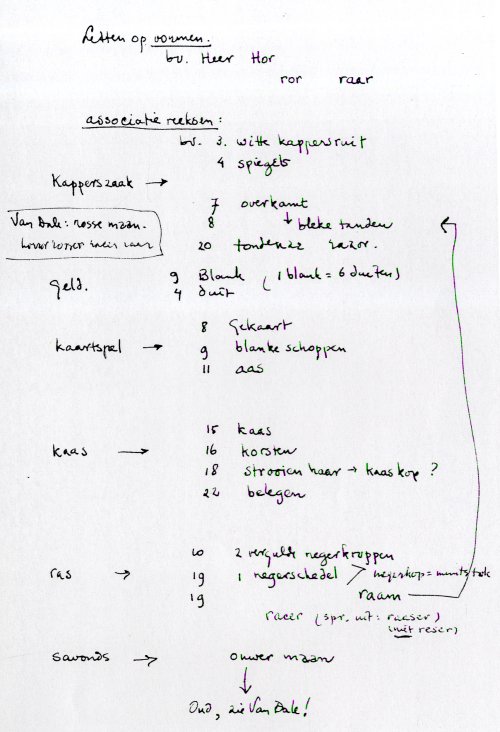 Letten op vormen.
bv. Heer Hor
ror raar
associatie reeksen:
bv. 3. witte kappersruit
4 spiegels
Kapperszaak →
7 overkamt
8 ↓ bleke tanden
Van Dale: rosse maan.
20 razor.
geld.
9 Blank (1 blank = 6 duiten)
4 duit
8 Gekaart
kaartspel → 9 blanke schoppen
11 aas
15 kaas
kaas → 16 korsten
18 strooien haar → kaaskop ?
22 belegen
10 2 vergulde negerkroppen
ras → 19 1 negerschedel negerkop =
19 raam
racer (spr. uit: raeser)
(niet reser)
savonds → onwer maan
↓
Oud, zie Van Dale!